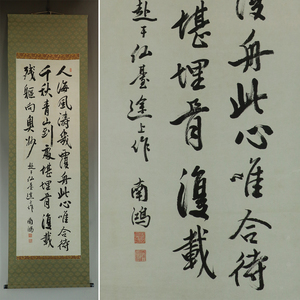 人海風濤幾覆舟此心唯合待
千秋青山到處堪埋骨復載
残軀向奥州 赴于仙臺途上作 南鴻
覆舟此心唯合待
堪埋骨復載
赴于仙臺途上作
南鴻